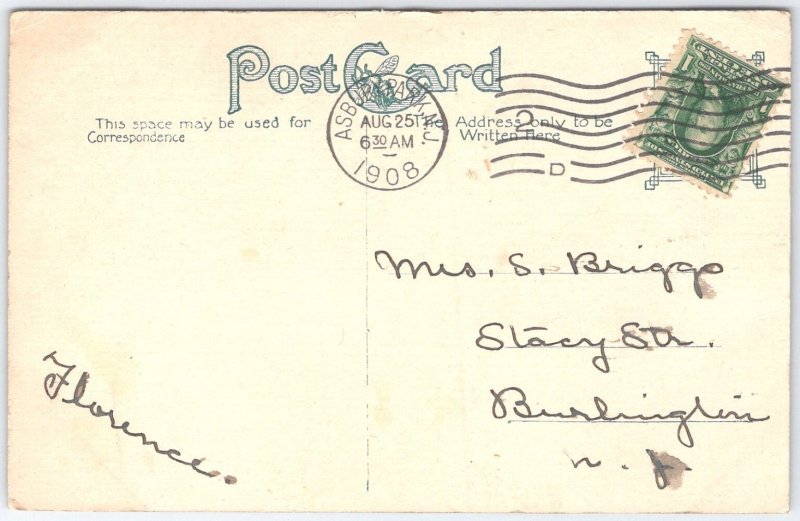 Post Card
This space may be used for
Correspondence
The Address only to be
Written Here
ASBURY PARK, N.J.
AUG 25
6 30 AM
1908
2
D
1
Mrs. S. Briggs
Stacy Str.
Burlington
N. J.
Florence.